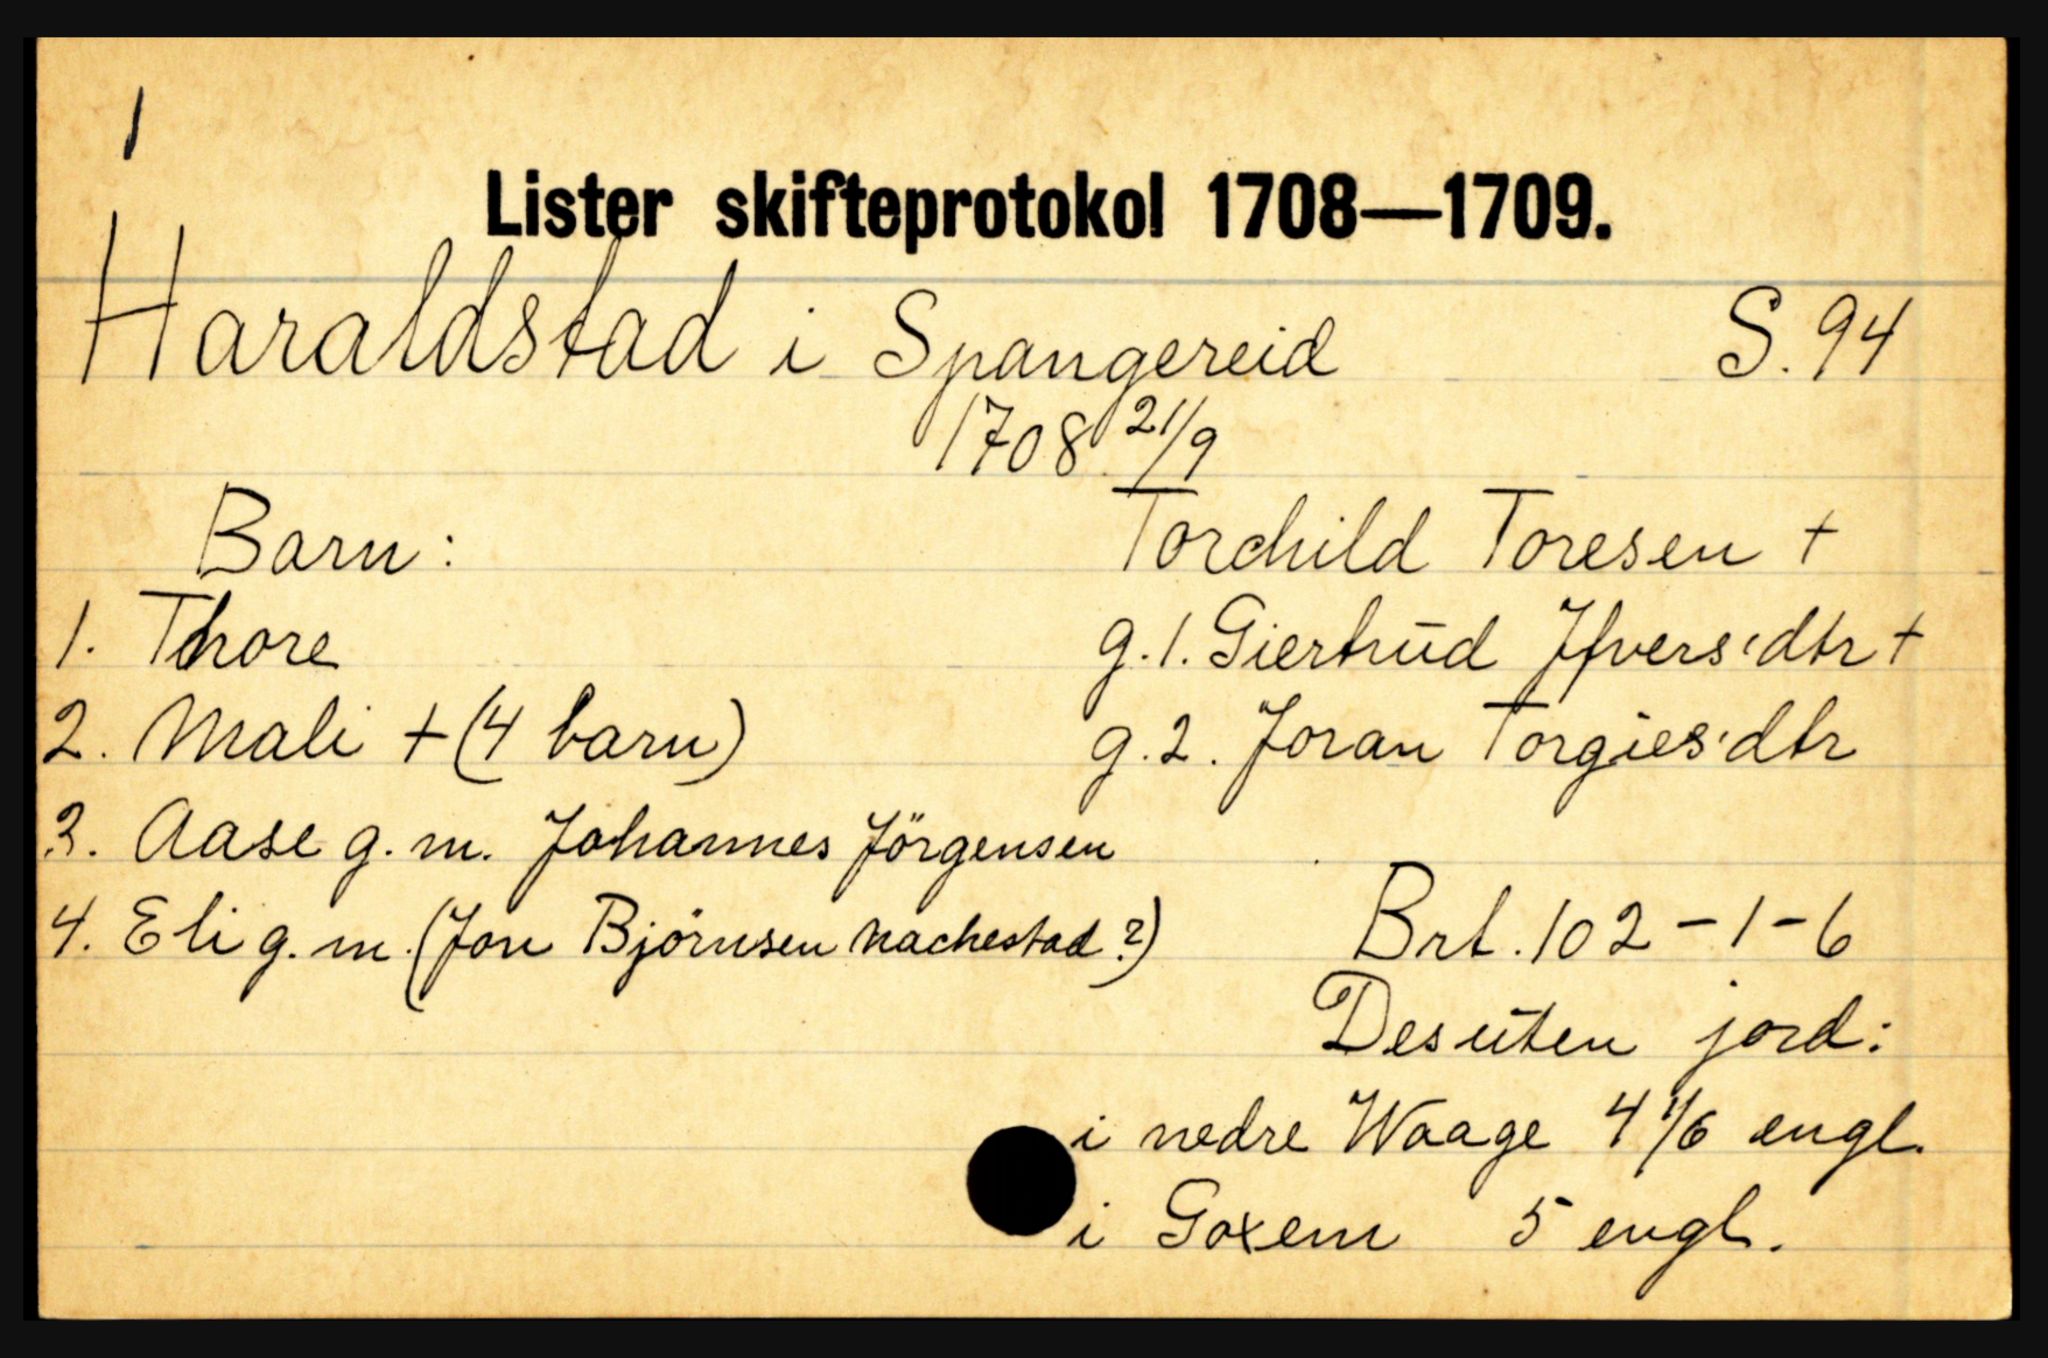 1
Lister skifteprotokol 1708—1709.
Haraldstad i Spangereid S. 94
1708 21/9
Torchild Toresen +
g.1. Giertrud Ifvers:dtr +
g.2. Joran Torgies:dtr
Barn:
1. Thore
2. Mali + (4 barn)
3. Aase g. m. Johannes Jörgensen
4. Eli g. m. (Jon Bjørnsen Nachestad?)
Brt. 102-1-6
Desuten jord:
i nedre Waage 4 1/6 engl.
i Goxem 5 engl.